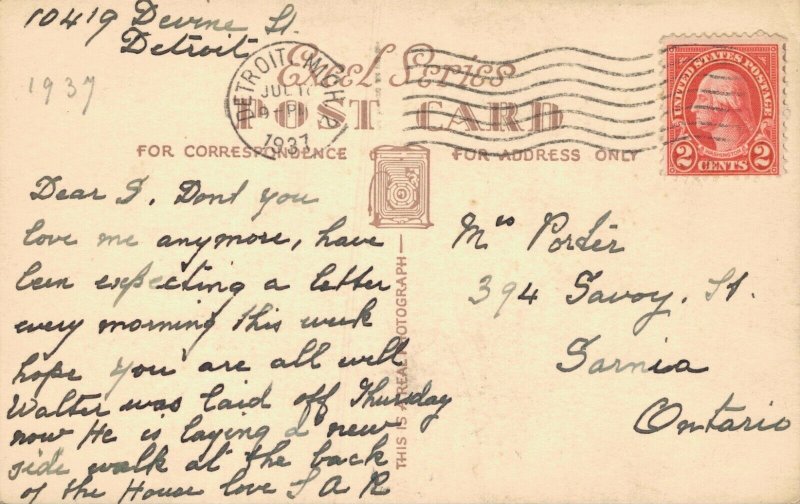 10419 Devine St.
Detroit
1937
DETROIT, MICH. 2
JUL
9 PM
1937
Excel Series
POST CARD
FOR CORRESPONDENCE
FOR ADDRESS ONLY
UNITED STATES POSTAGE
2 CENTS 2
THIS IS A REAL PHOTOGRAPH
Dear S. Dont you
love me anymore, have
been expecting a letter
every morning this week
hope you are all well
Walter was laid off Thursday
now He is laying a new
side walk at the back
of the House love S A R
Mrs Porter
394 Savoy. St.
Sarnia
Ontario